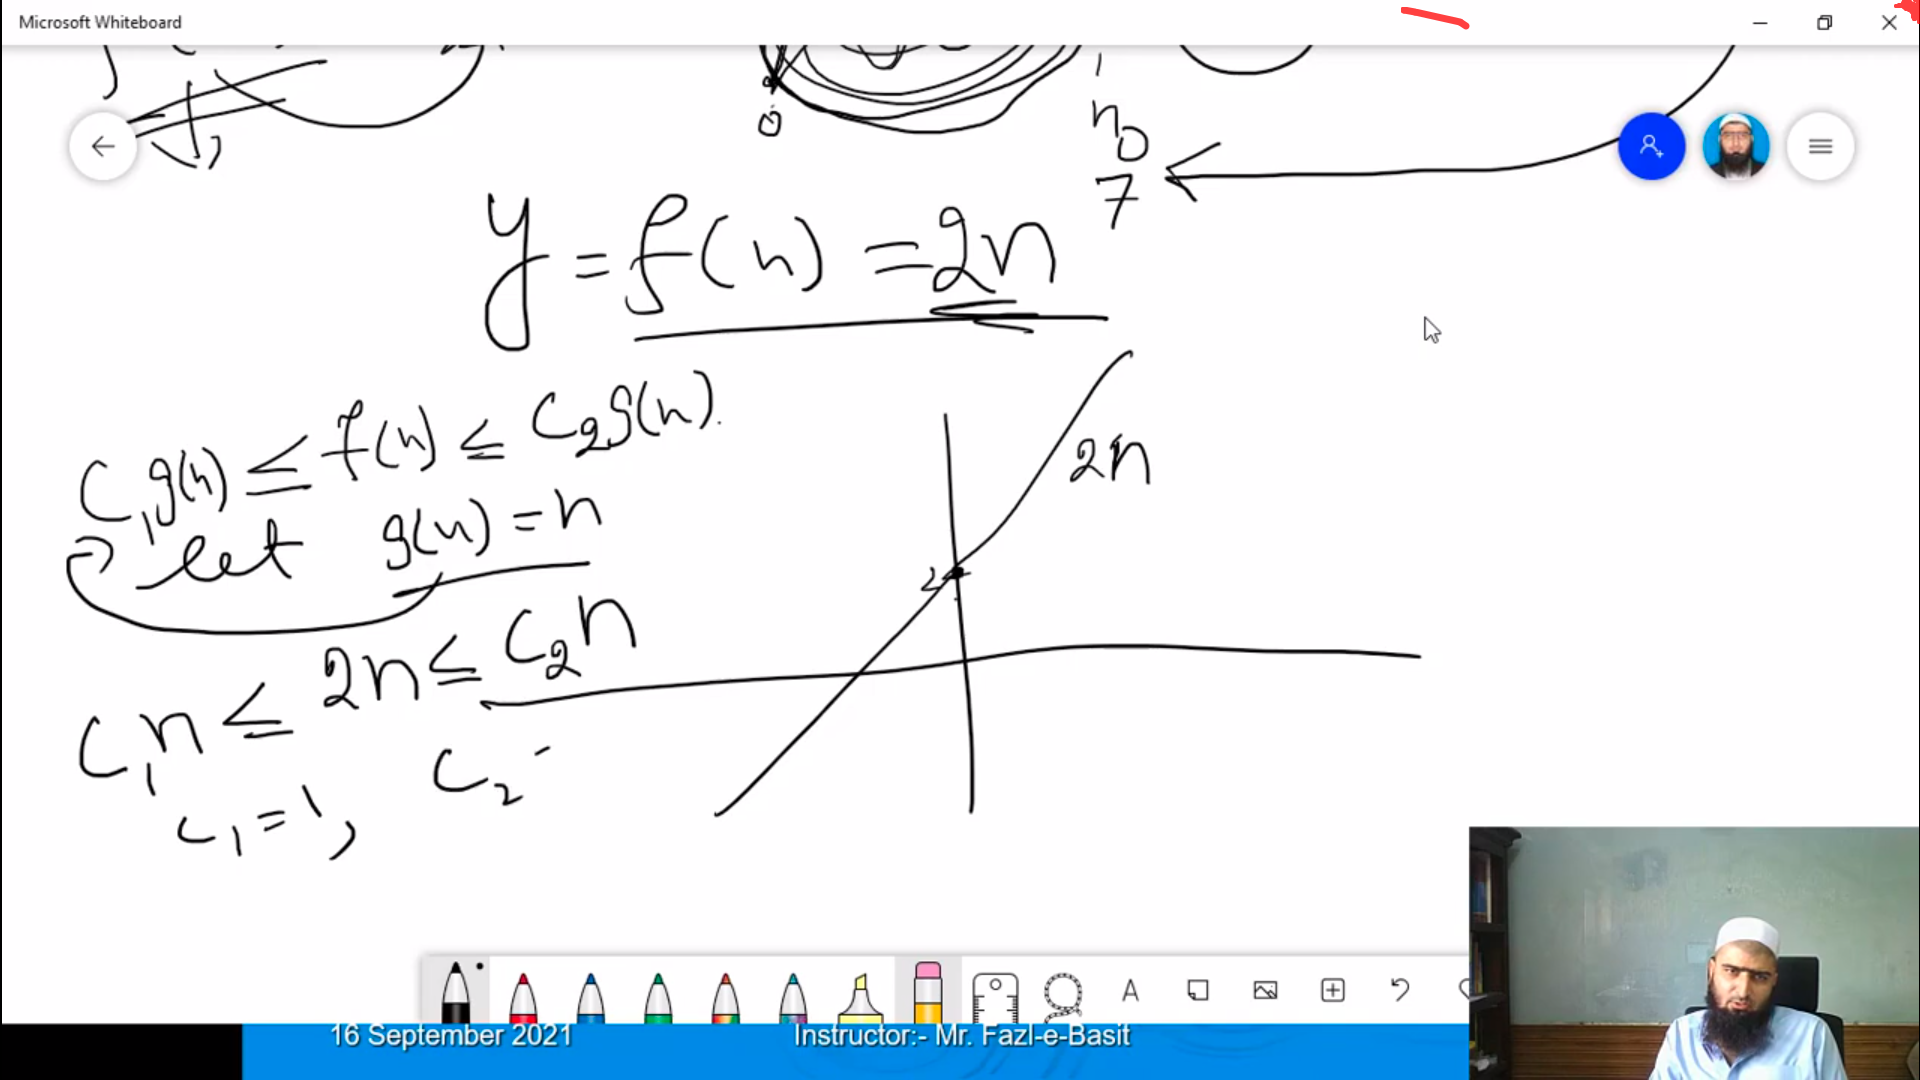 Microsoft Whiteboard
0
n0
7
y = f(n) = 2n
C1g(n) ≤ f(n) ≤ C2g(n).
let g(n) = n
2n
2
C1n ≤ 2n ≤ C2n
C1 = 1, C2 -
16 September 2021
Instructor:- Mr. Fazl-e-Basit